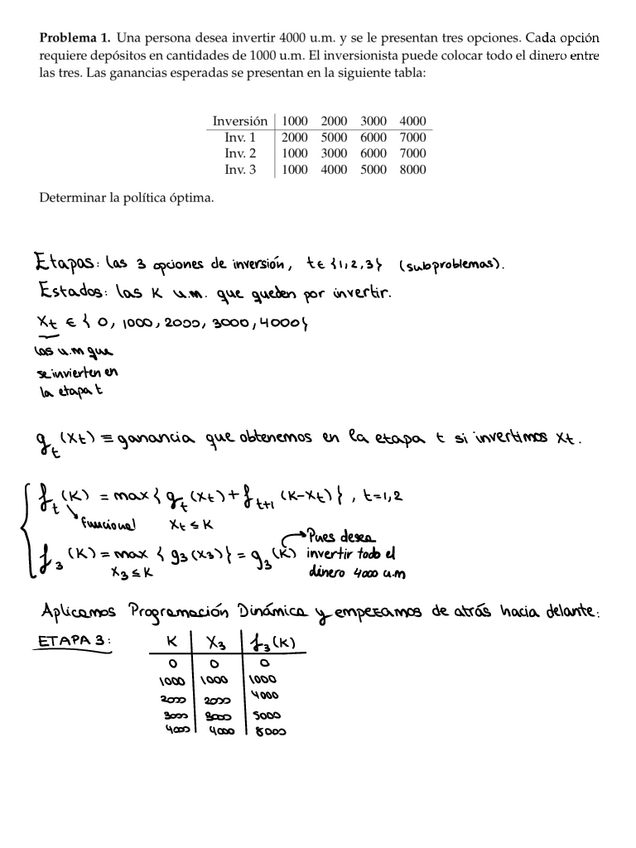 Problema 1. Una persona desea invertir 4000 u.m. y se le presentan tres opciones. Cada opción
requiere depósitos en cantidades de 1000 u.m. El inversionista puede colocar todo el dinero entre
las tres. Las ganancias esperadas se presentan en la siguiente tabla:
Inversión | 1000 2000 3000 4000
Inv. 1 | 2000 5000 6000 7000
Inv. 2 | 1000 3000 6000 7000
Inv. 3 | 1000 4000 5000 8000
Determinar la política óptima.
Etapas: las 3 opciones de inversión, t ∈ {1,2,3} (subproblemas).
Estados: las K u.m. que queden por invertir.
Xt ∈ {0, 1000, 2000, 3000, 4000}
las u.m que
se invierten en
la etapa t
g_t(Xt) ≡ ganancia que obtenemos en la etapa t si invertimos Xt.
f_t(K) = max { g_t(Xt) + f_{t+1}(K-Xt) }, t=1,2
funcional Xt ≤ K
f_3(K) = max { g_3(X3) } = g_3(K)
X3 ≤ K
Pues desea
invertir todo el
dinero 4000 u.m
Aplicamos Programación Dinámica y empezamos de atrás hacia delante:
ETAPA 3: K | X3 | f_3(K)
0 | 0 | 0
1000 | 1000 | 1000
2000 | 2000 | 4000
3000 | 3000 | 5000
4000 | 4000 | 8000